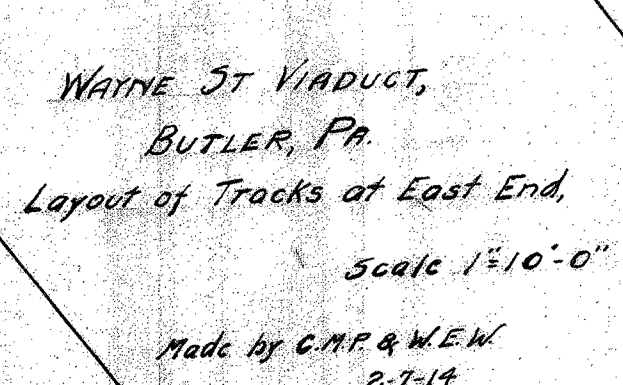 WAYNE ST VIADUCT,
BUTLER, PA.
Layout of Tracks at East End,
Scale 1"=10'-0"
Made by C.M.P. & W.E.W.
2-7-14